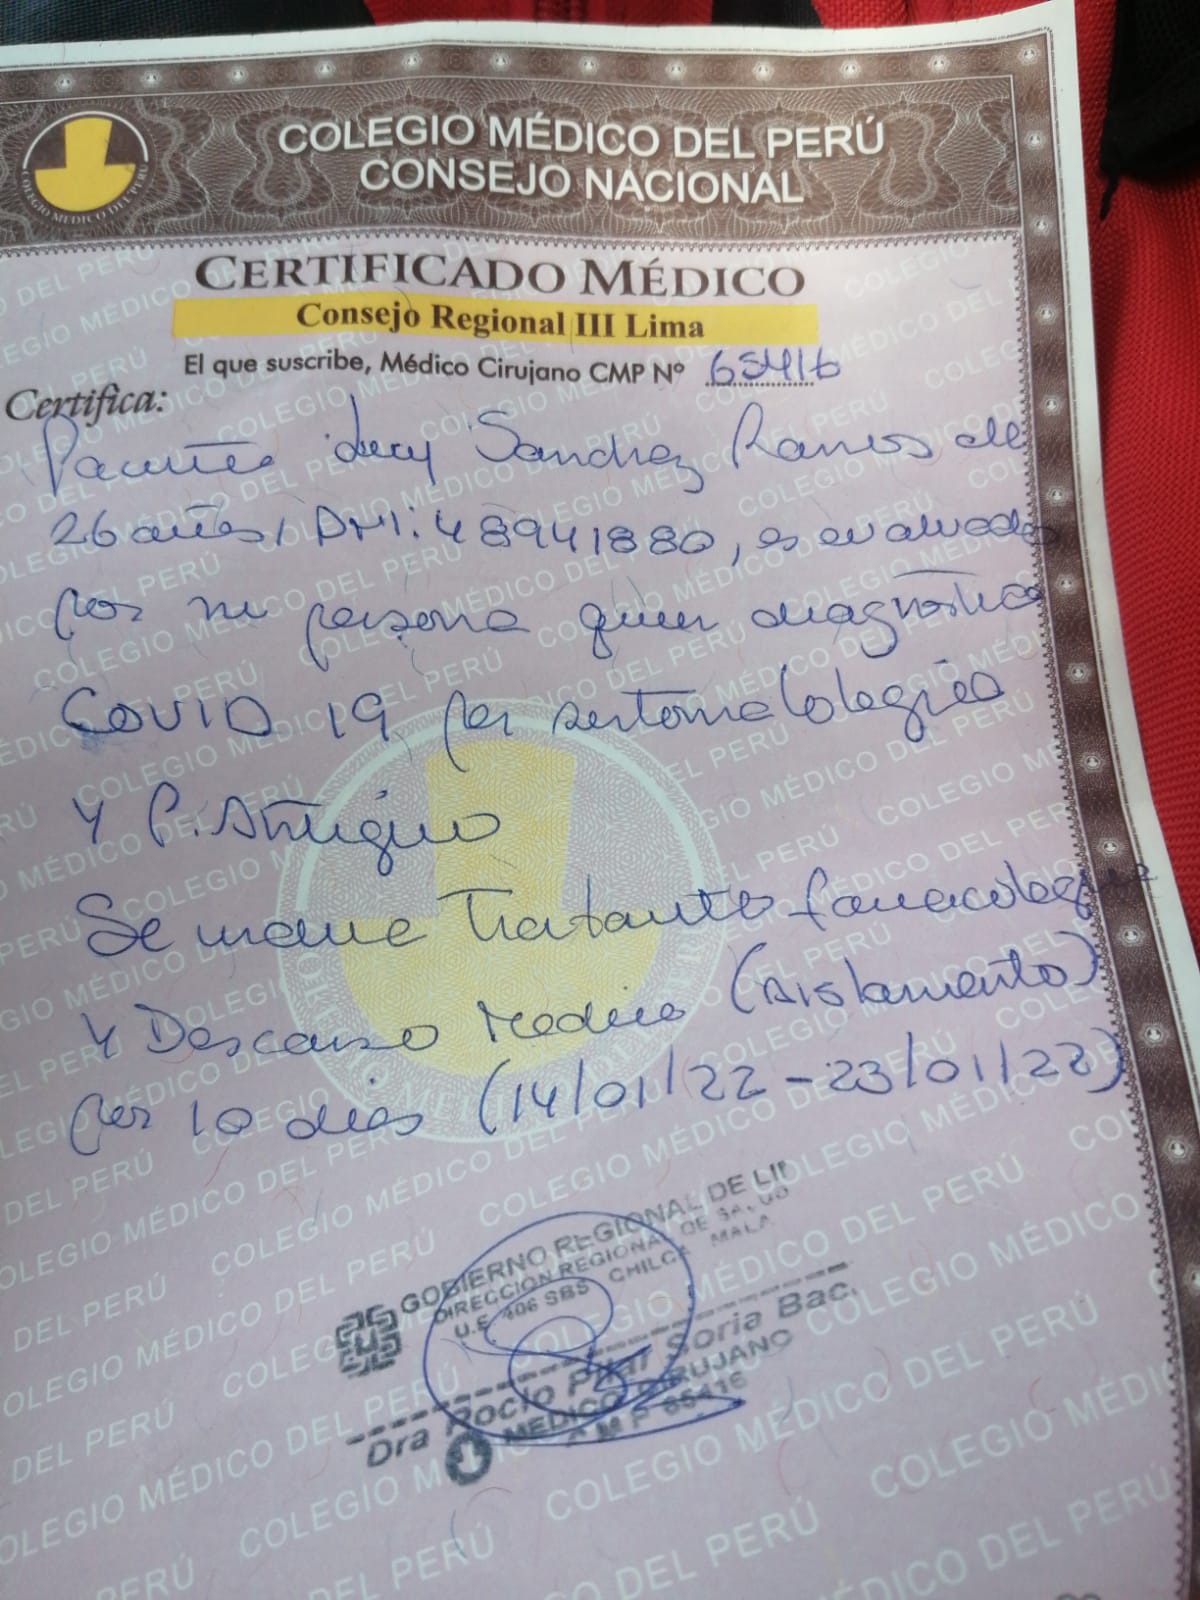 COLEGIO MÉDICO DEL PERÚ
CONSEJO NACIONAL
COLEGIO MEDICO DEL PERU
CERTIFICADO MÉDICO
Consejo Regional III Lima
El que suscribe, Médico Cirujano CMP Nº 65416
Certifica:
Paciente Lucy Sanchez Ramos de
26 años, DNI: 48941880, es evaluada
por mi persona quien diagnostica
COVID 19 por sintomatologia
y P. Antigeno
Se indica Tratamiento farmacologico
y Descanso Medico (Aislamiento)
por 10 dias (14/01/22 - 23/01/22)
GOBIERNO REGIONAL DE LIM
DIRECCION REGIONAL DE SALUD
U.E. 406 SBS CHILCA MALA
Dra Rocio Pilar Soria Bac.
MEDICO CIRUJANO
CMP 65416